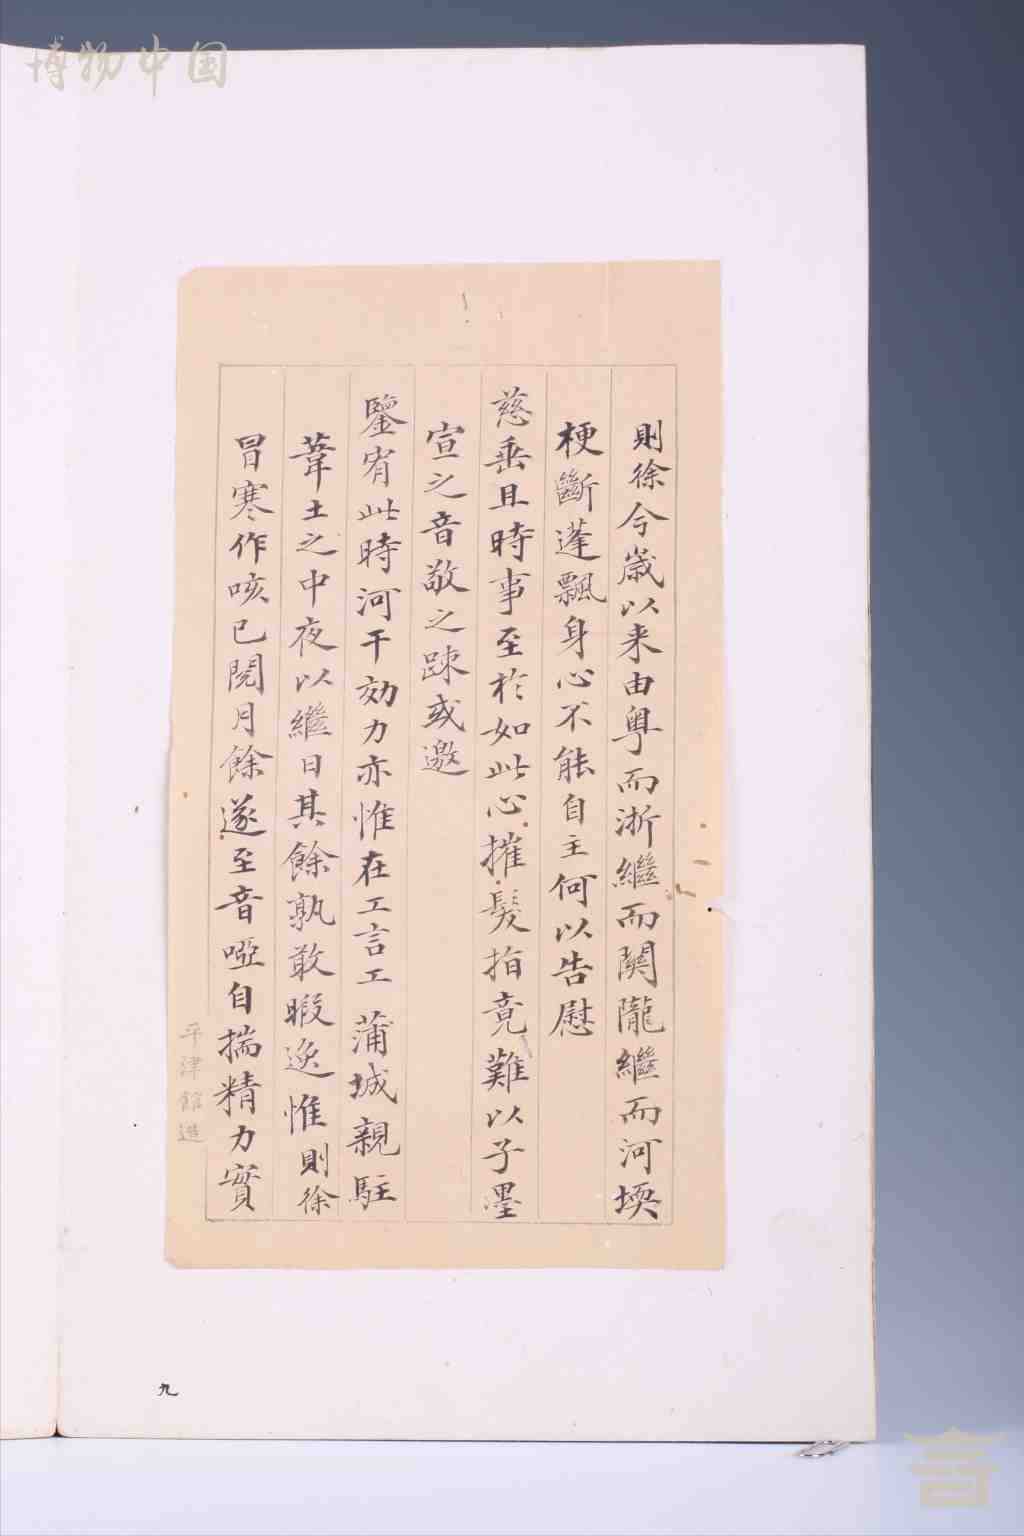 博物中国
則徐今嵗以来由粤而浙繼而關隴繼而河堧
梗斷蓬飄身心不能自主何以告慰
慈垂且時事至於如此心摧髮指竟難以子墨
宣之音敬之踈或邀
鑒宥此時河干効力亦惟在工言工 蒲城親駐
葦土之中夜以繼日其餘孰敢暇逸惟則徐
冒寒作咳已閱月餘遂至音啞自揣精力實
平津館造
九